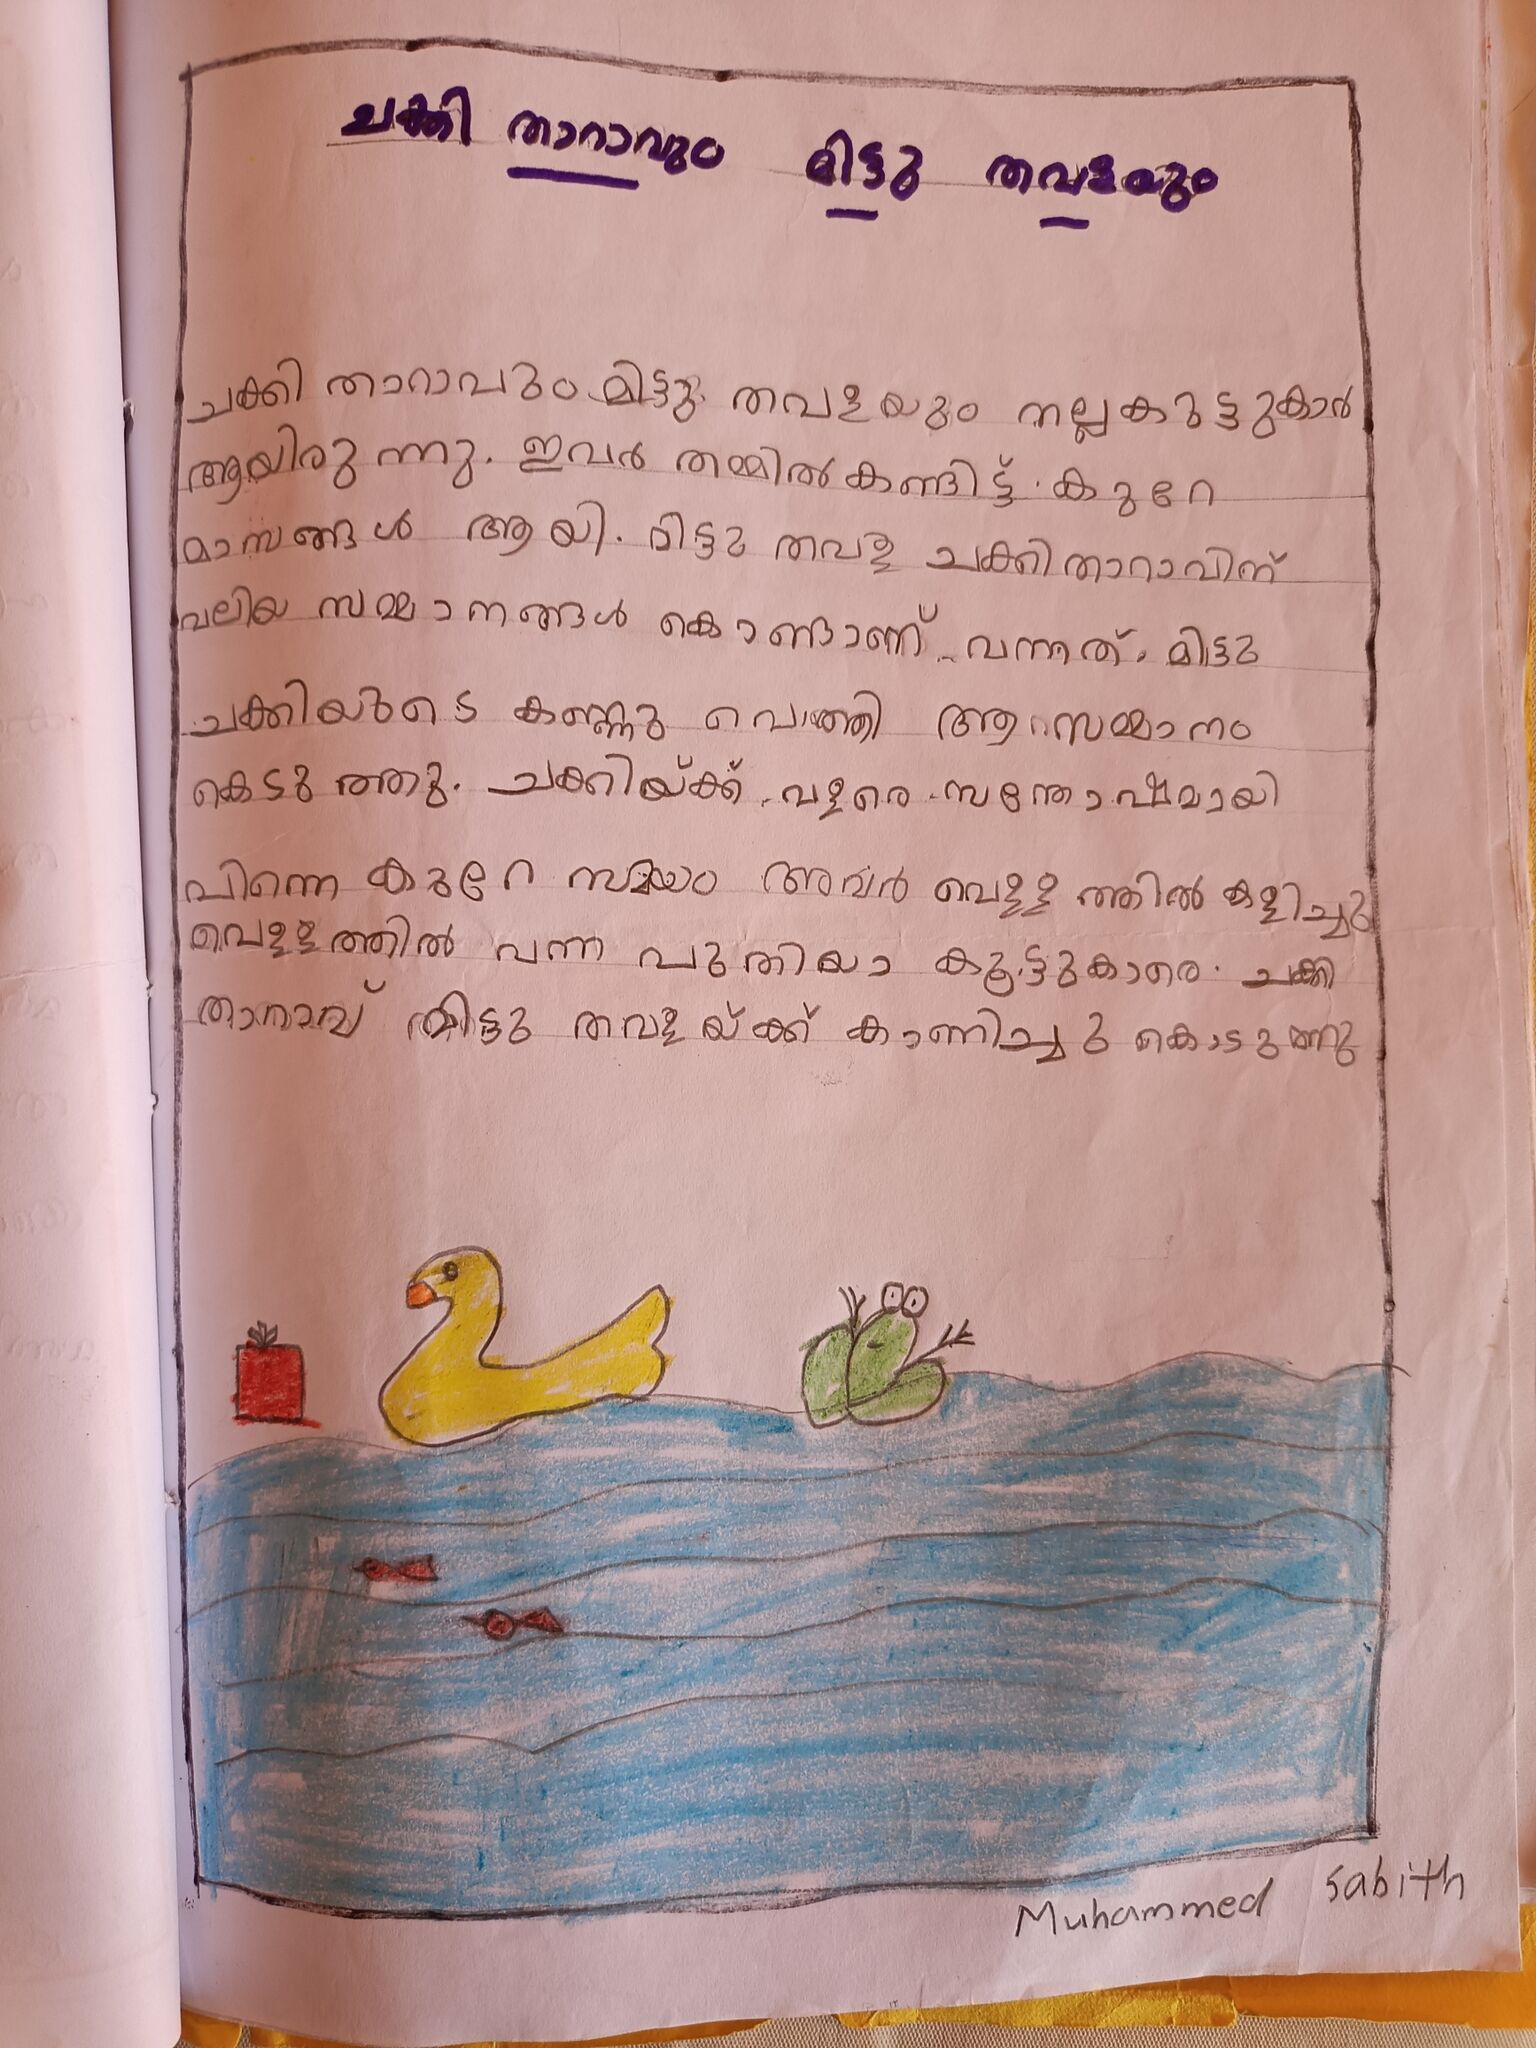 ചക്കി താറാവും മിട്ടു തവളയും
ചക്കി താറാവും മിട്ടു തവളയും നല്ല കുട്ടുകാർ
ആയിരുന്നു. ഇവർ തമ്മിൽ കണ്ടിട്ട് കുറേ
മാസങ്ങൾ ആയി. മിട്ടു തവള ചക്കി താറാവിന്
വലിയ സമ്മാനങ്ങൾ കൊണ്ടാണ് വന്നത്. മിട്ടു
ചക്കിയുടെ കണ്ണു പൊത്തി ആ സമ്മാനം
കെടുത്തു. ചക്കിയ്ക്ക് വളരെ സന്തോഷമായി
പിന്നെ കുറേ സമയം അവർ വെള്ളത്തിൽ കളിച്ചു
വെള്ളത്തിൽ വന്ന പുതിയാ കൂട്ടുകാരെ ചക്കി
താറാവ് മിട്ടു തവളയ്ക്ക് കാണിച്ചു കൊടുത്തു
Muhammed Sabith